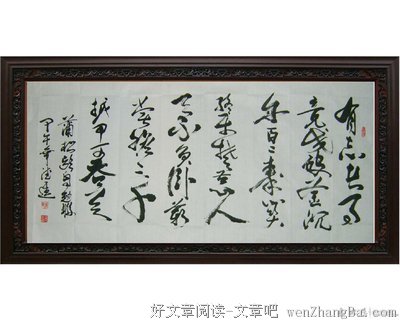 有志者事
竟成破釜沉
舟百二秦关
终属楚苦心人
天不负卧薪
尝胆三千
越甲可吞吴
蒲松龄自勉联
甲午年
好文章阅读-文章吧
wenZhangBa.com